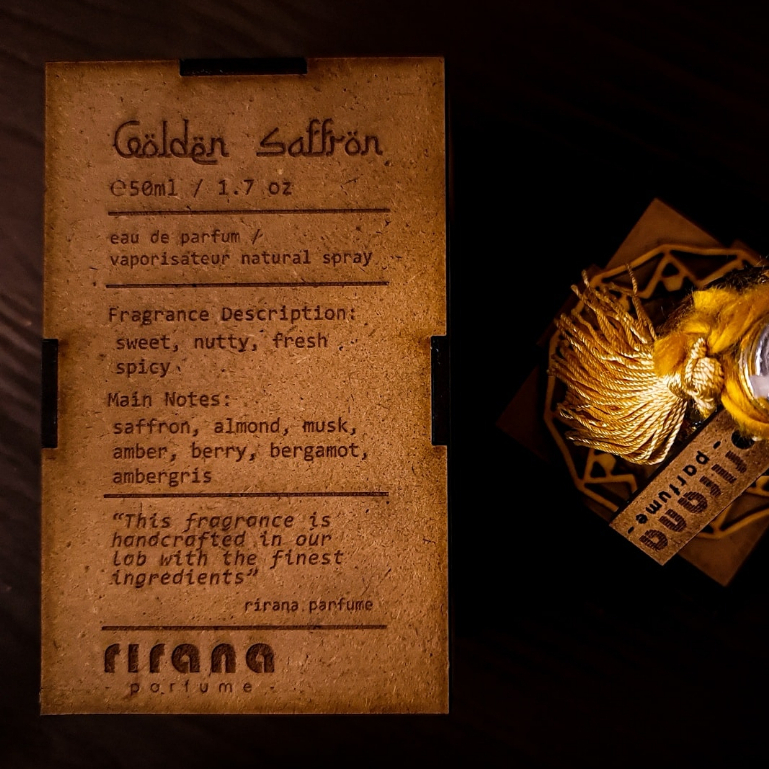 Göldën Saffrön
℮50ml / 1.7 oz
eau de parfum /
vaporisateur natural spray
Fragrance Description:
sweet, nutty, fresh
spicy
Main Notes:
saffron, almond, musk,
amber, berry, bergamot,
ambergris
“This fragrance is
handcrafted in our
lab with the finest
ingredients”
rirana parfume
rirana
- parfume -
rirana
- parfume -